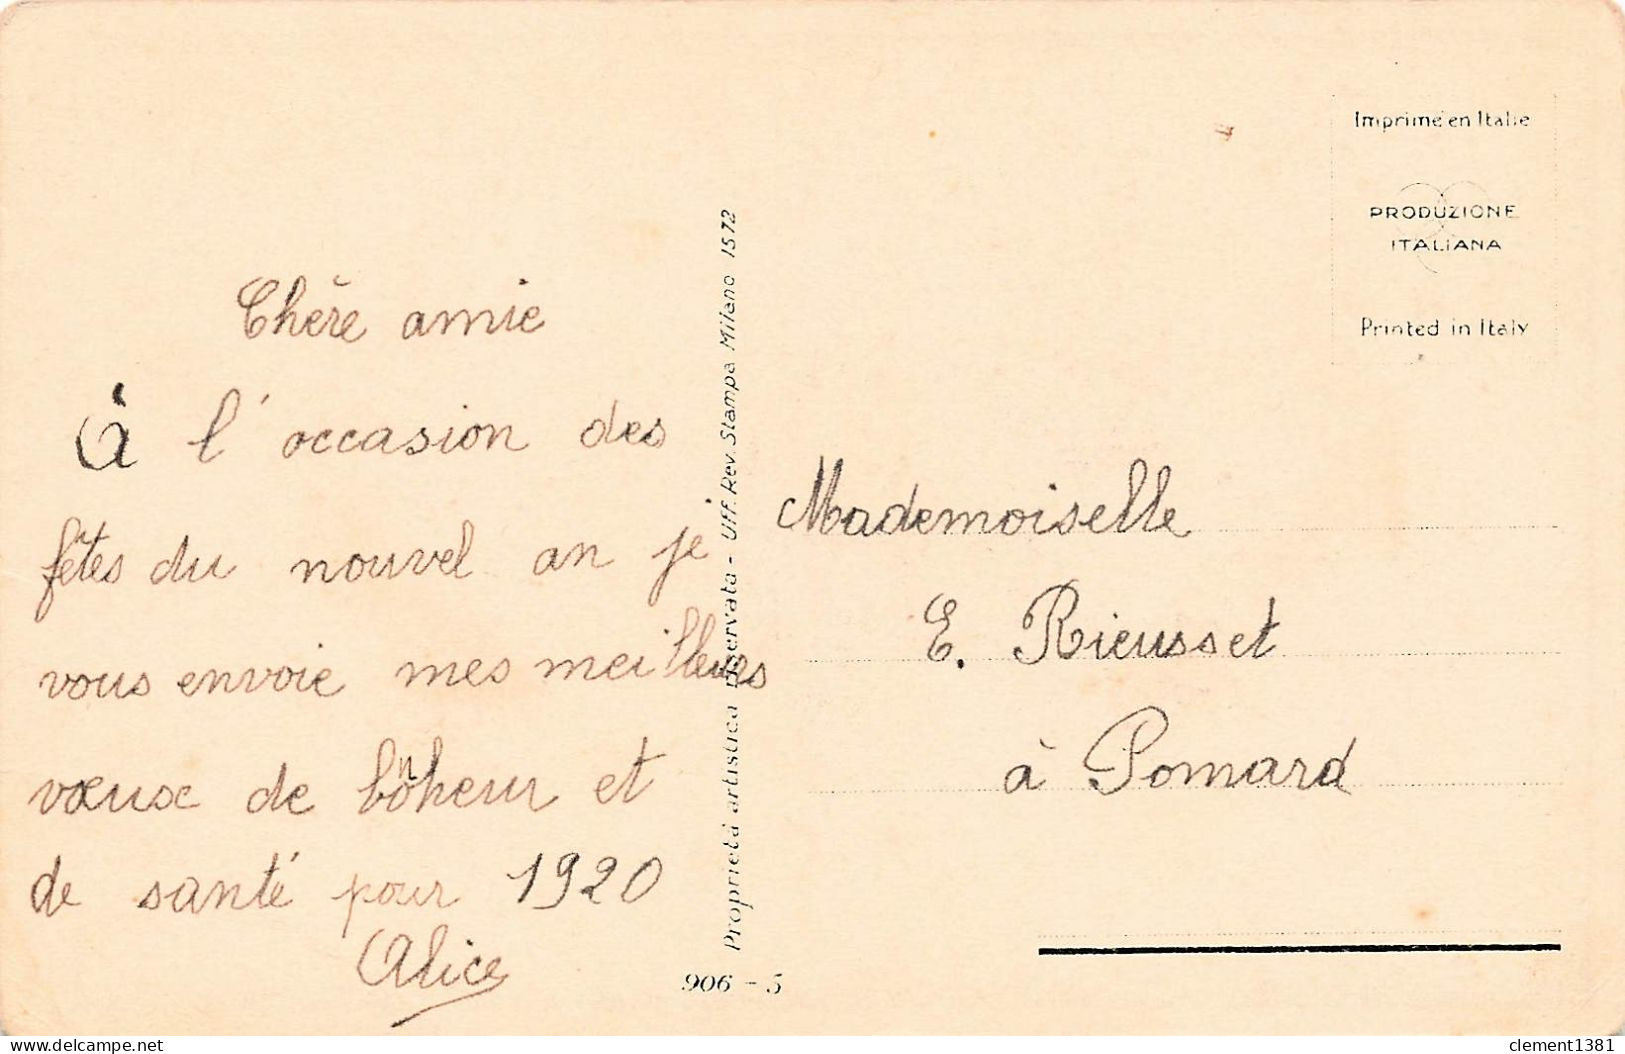 Chère amie
À l'occasion des
fêtes du nouvel an je
vous envoie mes meilleures
vœux de bônheur et
de santé pour 1920
Alice
Proprietà artistica riservata - Uff. Rev. Stampa Milano 1572
906 - 5
Imprimé en Italie
PRODUZIONE
ITALIANA
Printed in Italy
Mademoiselle
E. Rieusset
à Pomard
delcampe.net
clement1381